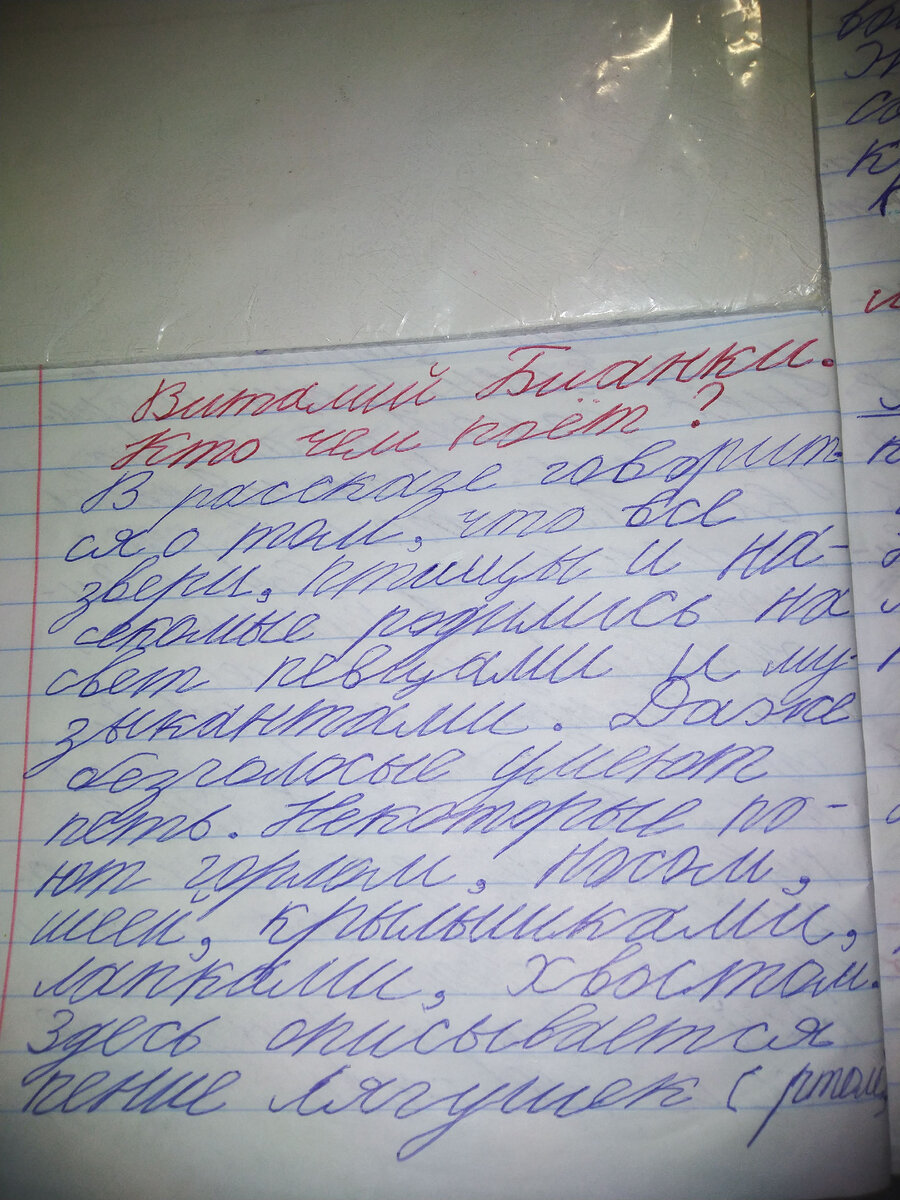 Виталий Бианки.
Кто чем поёт?
В рассказе говорит-
ся о том, что все
звери, птицы и на-
секомые родились на
свет певцами и му-
зыкантами. Даже
безголосые умеют
петь. Некоторые по-
ют горлом, носом,
шеей, крылышками,
лапками, хвостом.
Здесь описывается
пение лягушек (ртом,